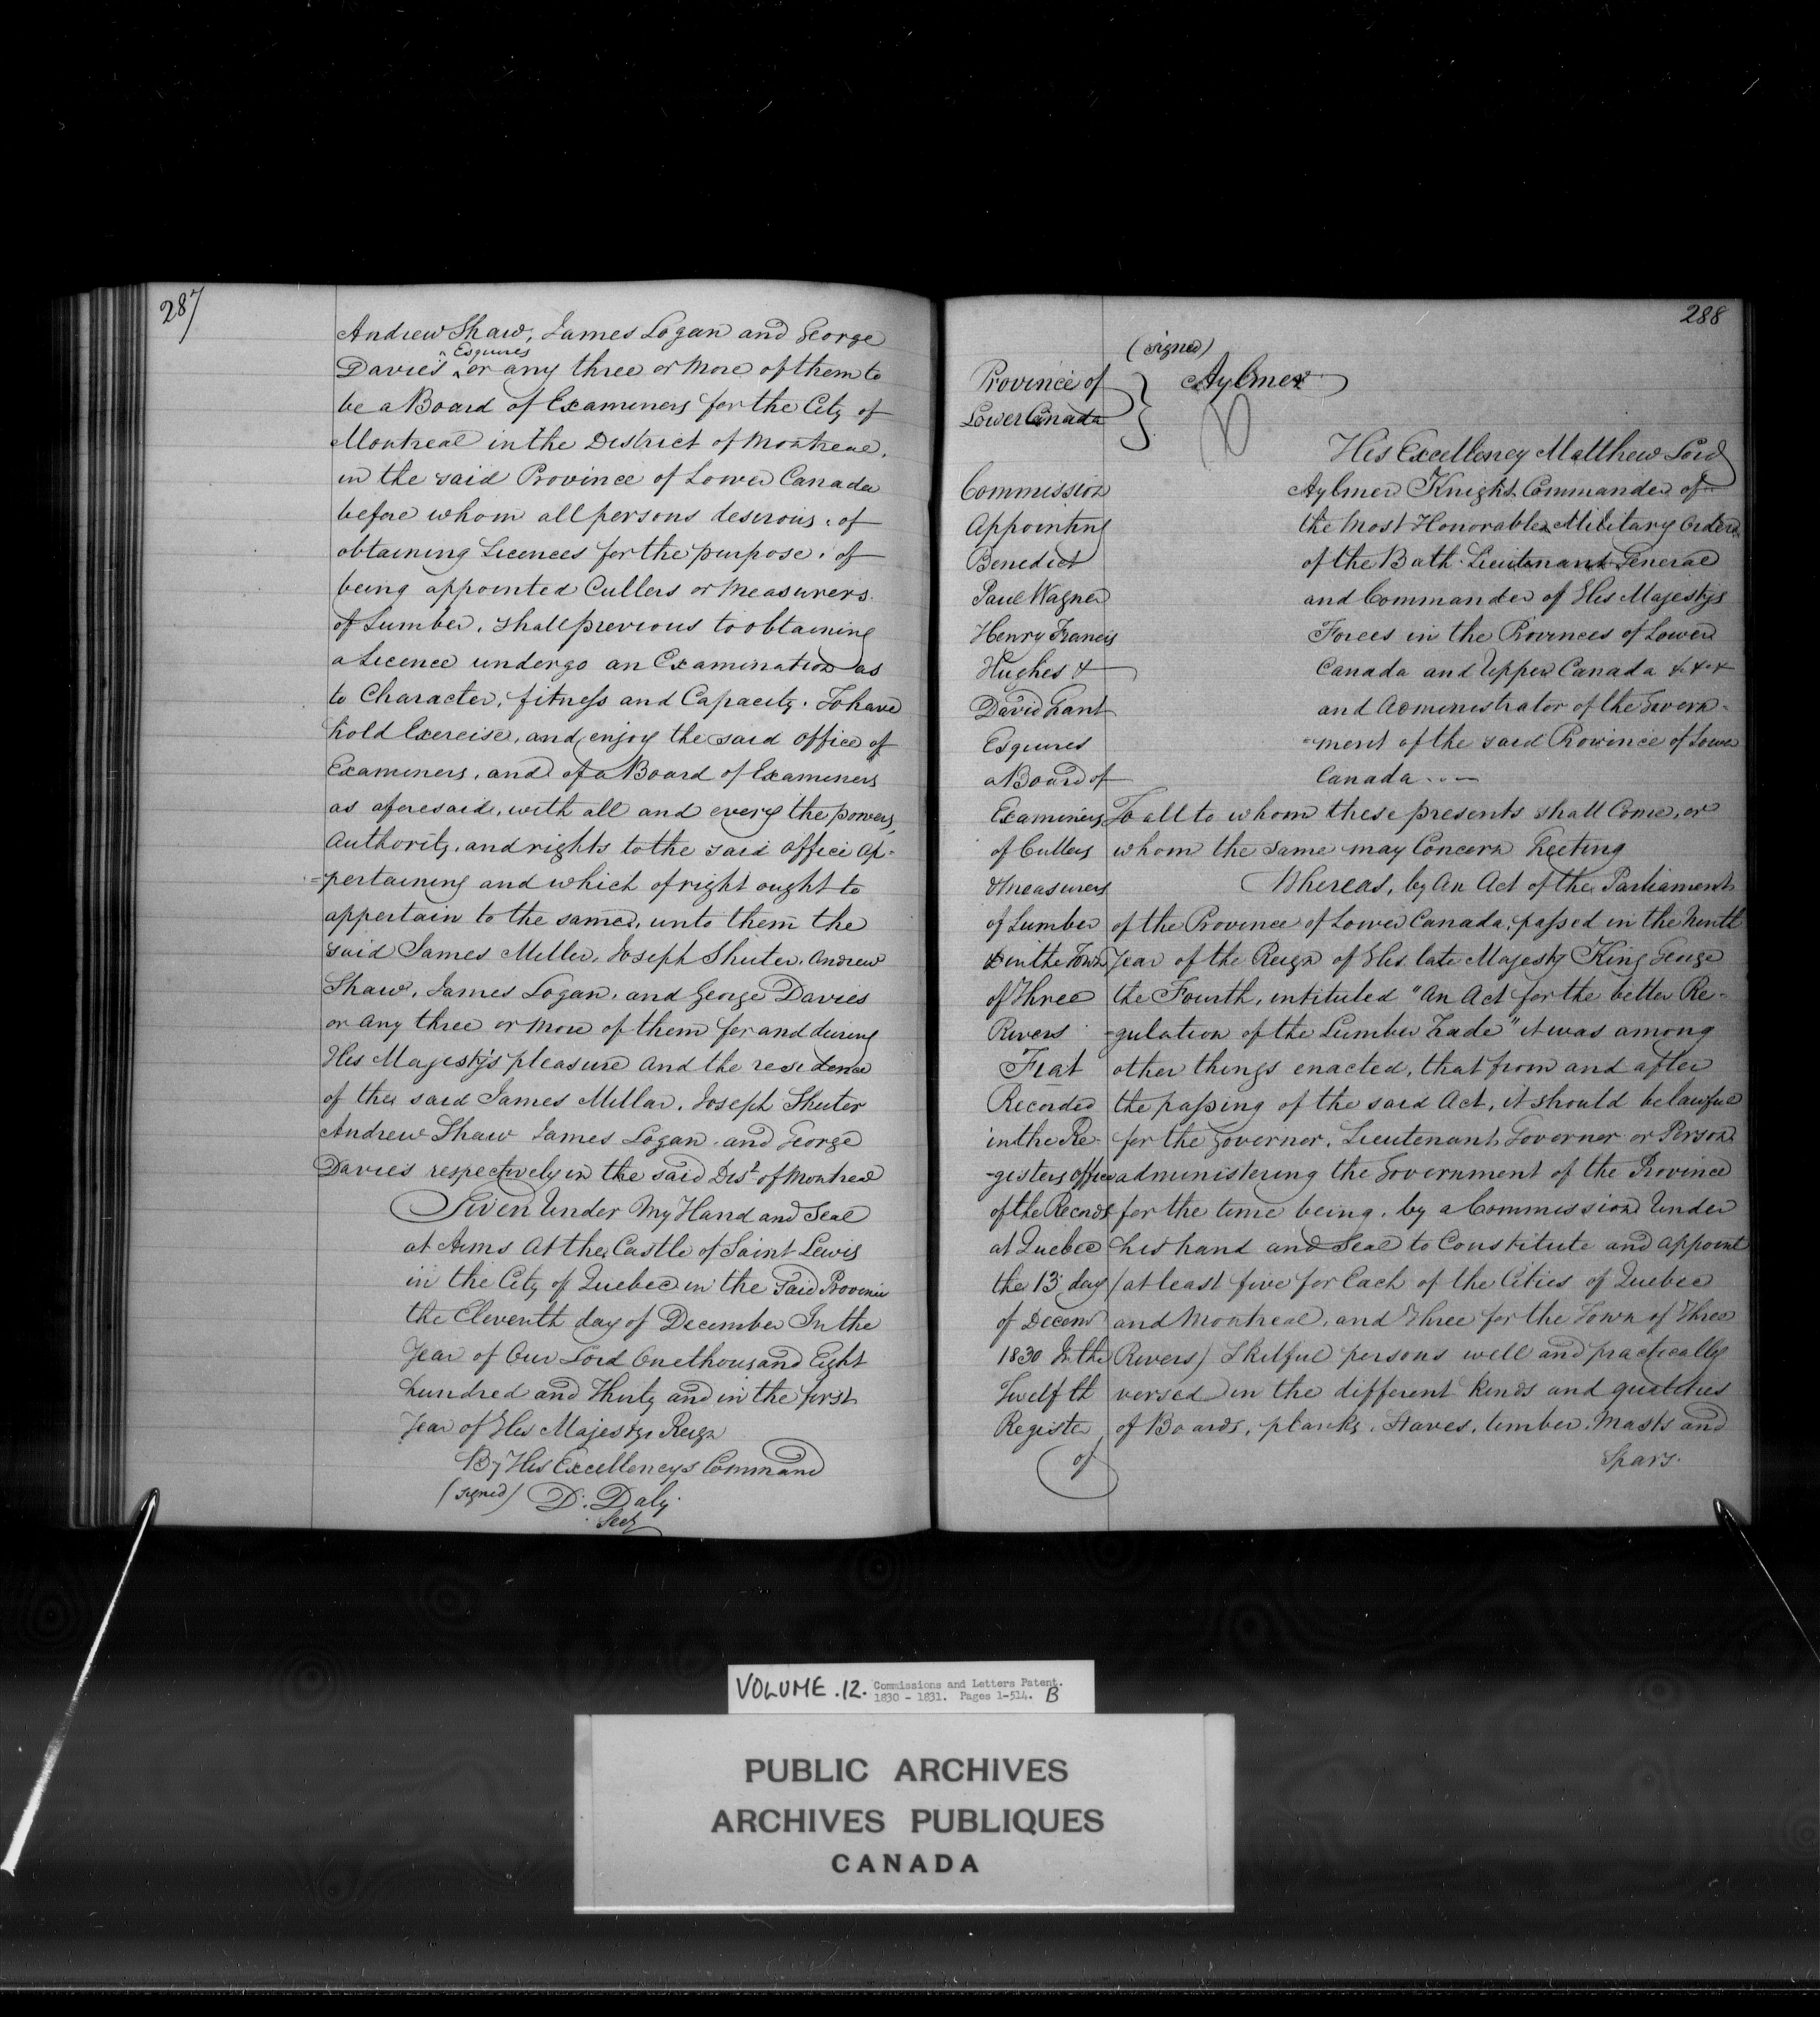 287
Andrew Shaw, James Logan and George
Esquires
Davies or any three or more of them to
be a Board of Examiners for the City of
Montreal in the District of Montreal,
in the said Province of Lower Canada
before whom all persons desirous, of
obtaining Licences for the purpose, of
being appointed Cullers or Measurers.
of Lumber, shall previous to obtaining
a Licence undergo an Examination as
to Character, fitness and Capacity. To have
hold Exercise, and enjoy the said office of
Examiners, and of a Board of Examiners
as aforesaid, with all and every the powers,
Authority, and rights to the said office Ap-
-pertaining and which of right ought to
appertain to the same, unto them the
said James Miller, Joseph Shuter, Andrew
Shaw, James Logan, and George Davies
or any three or more of them for and during
His Majesty's pleasure and the residence
of the said James Millar, Joseph Shuter
Andrew Shaw James Logan and George
Davies respectively in the said Dist of Montreal
Given Under My Hand and Seal
at Arms At the Castle of Saint Lewis
in the City of Quebec in the Said Province
the Eleventh day of December In the
Year of Our Lord One thousand Eight
hundred and Thirty and in the first
Year of His Majestys Reign
By His Excellencys Command
(signed) D. Daly
Secy
288
(signed)
Province of
Lower Canada
Aylmer
His Excellency Matthew Lord
Aylmer Knight Commander of
the Most Honorable Military Order
of the Bath Lieutenant General
and Commander of His Majestys
Forces in the Provinces of Lower
Canada and Upper Canada &c &c &c
and Administrator of the Govern-
-ment of the said Province of Lower
Canada
Commission
Appointing
Benedict
Paul Wagner
Henry Francis
Hughes &
David Grant
Esquires
a Board of
Examiners
of Cullers
& Measurers
of Lumber
in the Town
of Three
Rivers
Fiat
Recorded
in the Re-
-gisters Office
of the Records
at Quebec
the 13 day
of Decemr
1830 In the
Twelfth
Register
of
To all to whom these presents shall Come, or
whom the same may Concern Greeting
Whereas, by An Act of the Parliament
of the Province of Lower Canada, passed in the Ninth
Year of the Reign of His late Majesty King George
the Fourth, intituled "An Act for the better Re-
-gulation of the Lumber Trade" it was among
other things enacted, that from and after
the passing of the said Act, it should be lawful
for the Governor, Lieutenant Governor or Person
administering the Government of the Province
for the time being, by a Commission Under
his hand and Seal to Constitute and appoint
(at least five for Each of the Cities of Quebec
and Montreal, and Three for the Town of Three
Rivers) Skilful persons well and practically
versed in the different kinds and qualities
of Boards, planks, Staves, timber, Masts and
Spars.
VOLUME .12. Commissions and Letters Patent.
1830 - 1831. Pages 1-514. B
PUBLIC ARCHIVES
ARCHIVES PUBLIQUES
CANADA